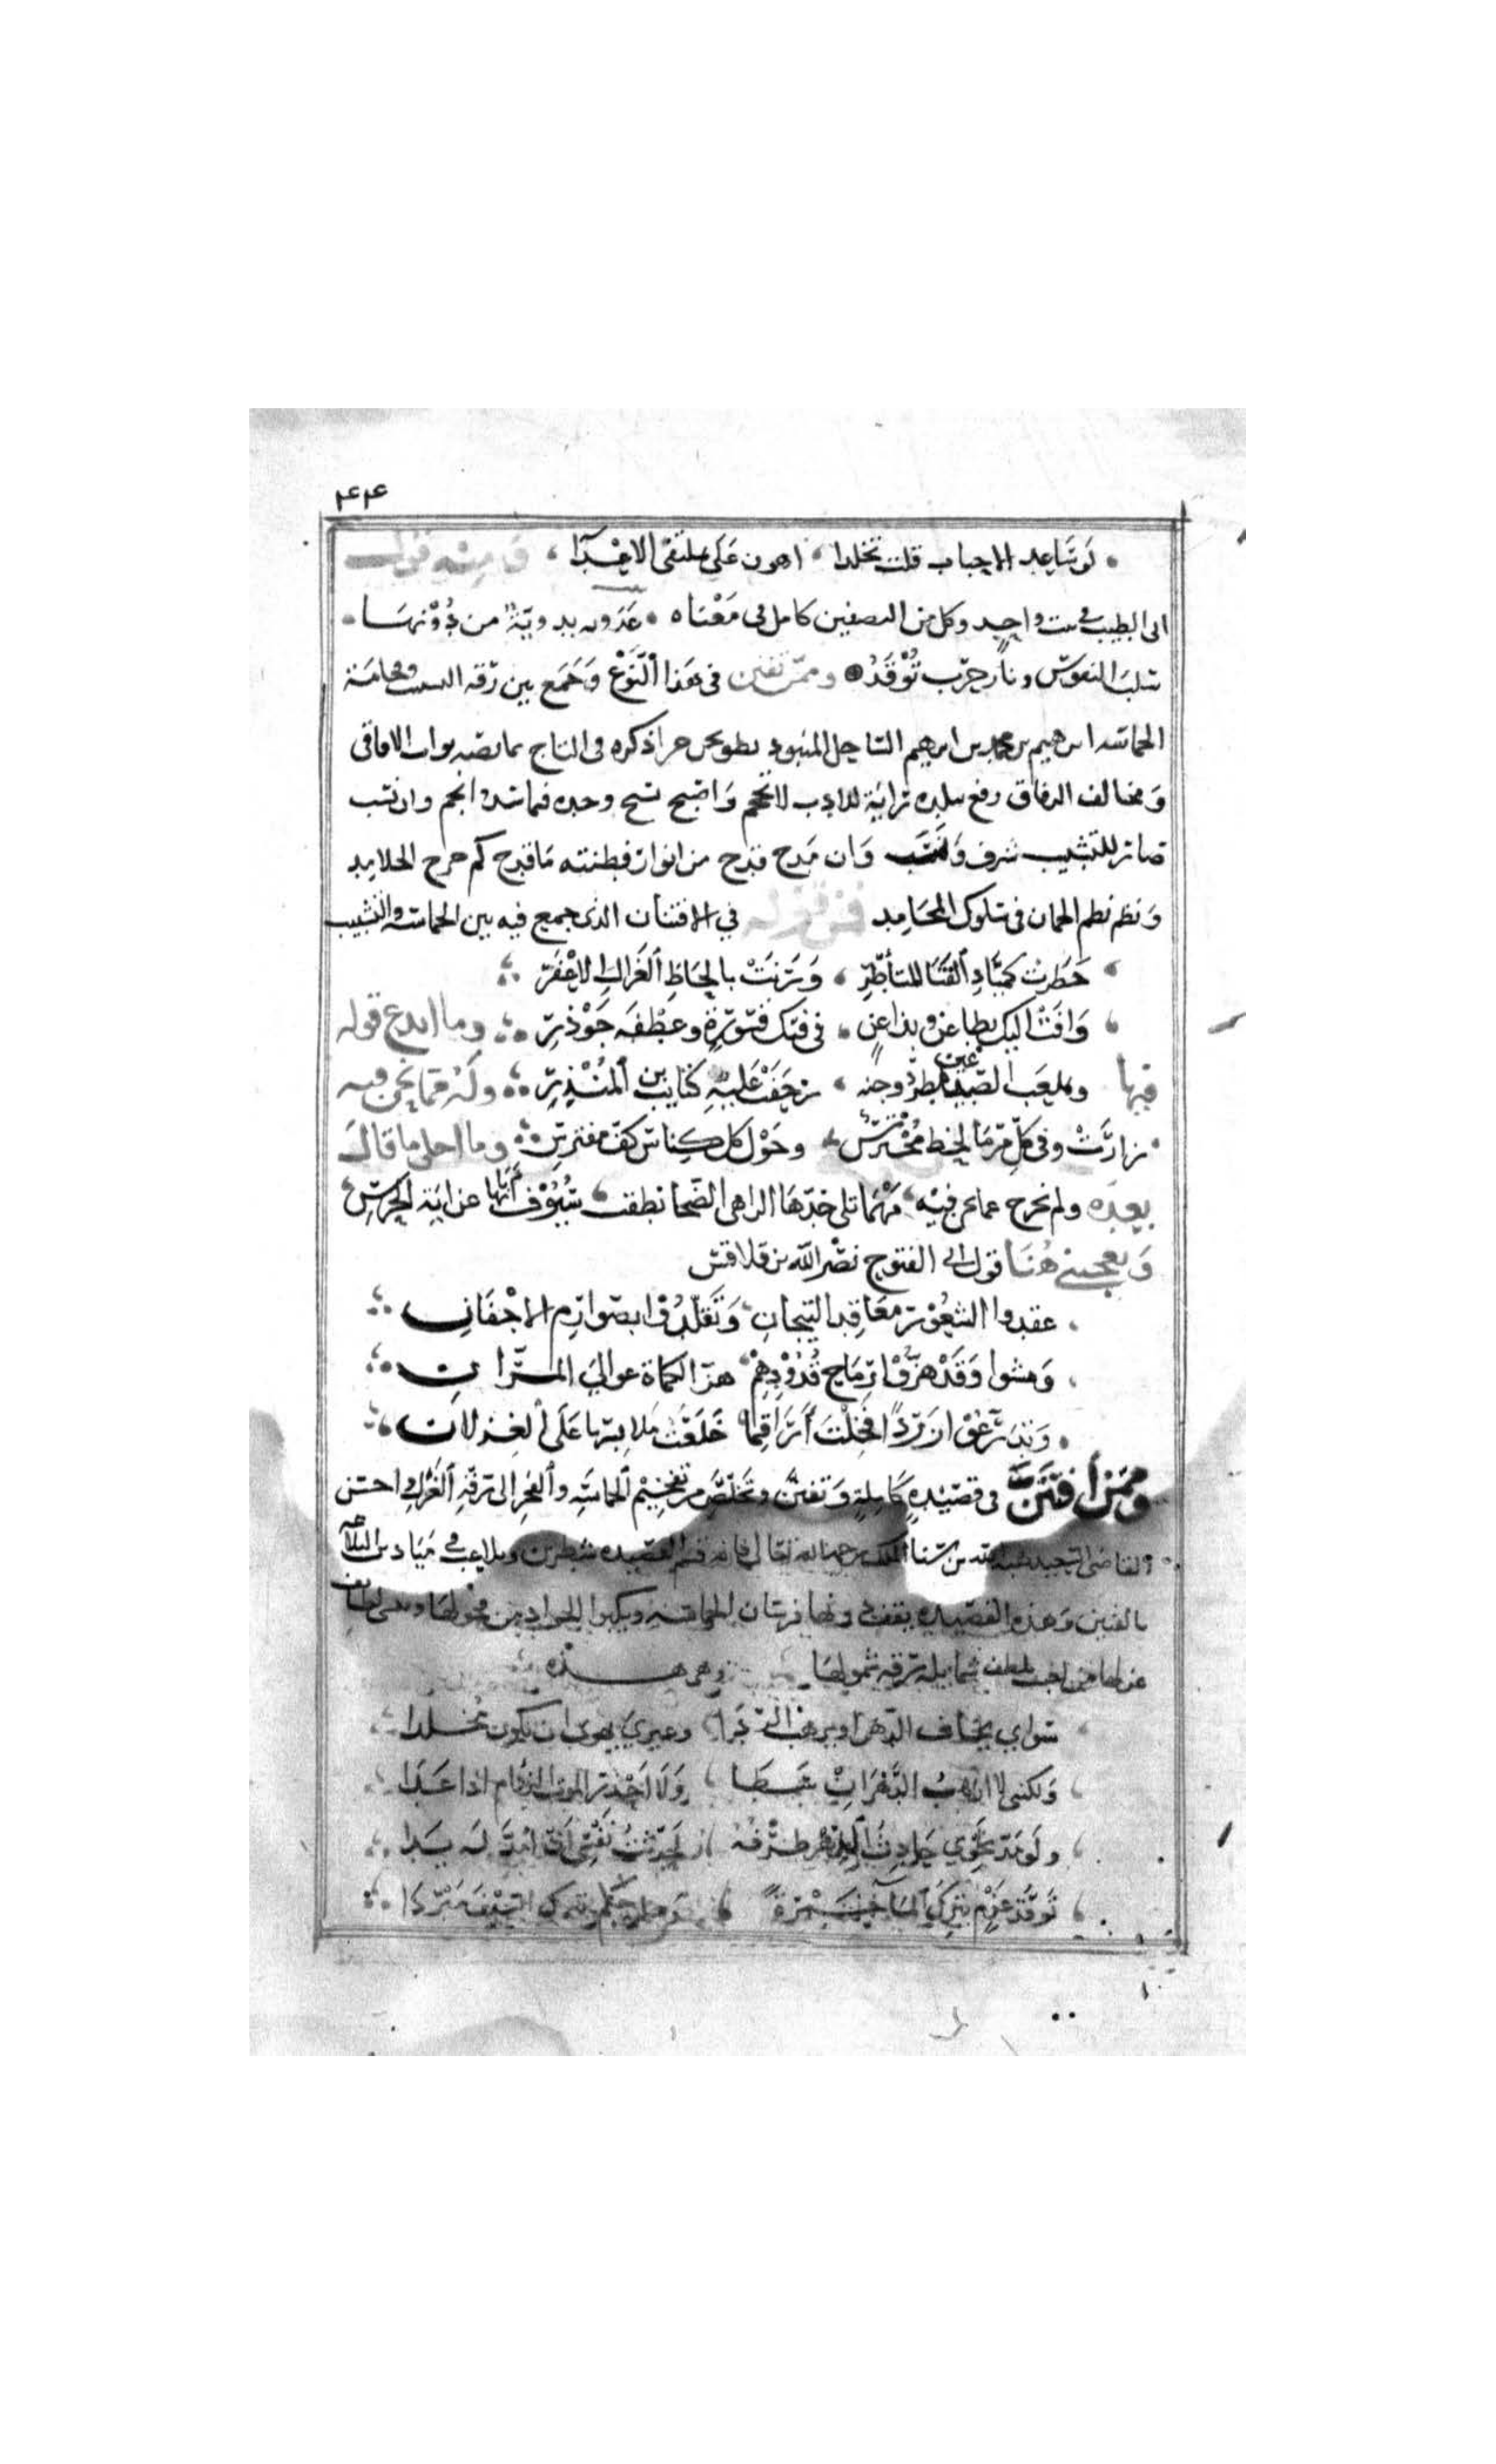 ٤٤
لو ساعد الاحباب قلت تخلدا ، اهون على بملتقى الاعدا ، ومنه قول
ابى الطيب فى بيت واحد وكل من النصفين كامل فى معناه • عدوية بدوية من دونها •
سلب النفوس ونار حرب توقد • وممن تفنن فى هذا النوع وجمع بين رقة النسيب وفخامة
الحماسة ابرهيم بن محمد بن ابرهيم الساحلى المنبوذ ذكره فى التاج بما نصه جواب الافاق
ومخالف الرفاق رفع ببلده راية للادب لا تحجم واصبح نسيج وحده فما سدى والحم وان نسب
صار للتشبيب شرف ونسب وان مدح قدح من انوار فطنته ما قدح كم حرك الجلامد
ونظم نظم الجمان فى سلوك المحامد فمن قوله فى الافتنان الذى جمع فيه بين الحماسة والتشبيب
خطرت كمياد القنا المتأطر ، ورنت بالحاظ الغزال الاعفر
وافت اليك بطاعن وبذا عن ، فى فتك قسورة وعطفة جوذر وما ابدع قوله
فيها وبملعب الصدغين مطرد وجنه ، زحفت عليه كتايب بن المنذر وله مما نحن فيه
زارت وفى كل مرما لحظ محترس ، وحول كل كناس كف مفترس وما احلى ما قال
بعده ولم نخرج عما نحن فيه ، مهما تلى خدها الزاهى الضحا نطقت ، سيوف ابائها عن اية الحرس
ويعجبنى هنا قول ابى الفتوح نصر الله بن قلاقس
عقدوا الشعور معاقد التيجان ، وتقلدوا بصوارم الاجفان
ومشوا وقد هزوا رماح قدودهم ، هز الكماة عوالى المران
وتدرعوا زردا فخلت اراقما ، خلعت ملابسها على الغزلان
وممن افتن فى قصيدة كاملة وتفنن وتخلص من تفخيم الحماسة والفخر الى رقة الغزل واحسن
القاضى السعيد هبة الله بن سنا الملك رحمه الله تعالى فانه قسم القصيدة شطرين وتلاعب فى ميادين البلاغه
بالفنين وهذه القصيدة يقف دونها فرسان الحماسة ويكبوا الجواد من فحولها
غزلها من لطف شمايله رقة شمولها وهى هذه
سواى يخاف الدهر او يرهب الردا ، وغيرى يهوى ان يكون مخلدا
ولكننى لا ارهب الدهر ان سطا ، ولا احذر الموت الزؤام اذا عدا
ولو مد نحوى حادث الدهر طرفه ، لحدثت نفسى ان امد له يدا
توقد عزم يترك الماء جمرة ، وحلية حلم تترك السيف مبردا